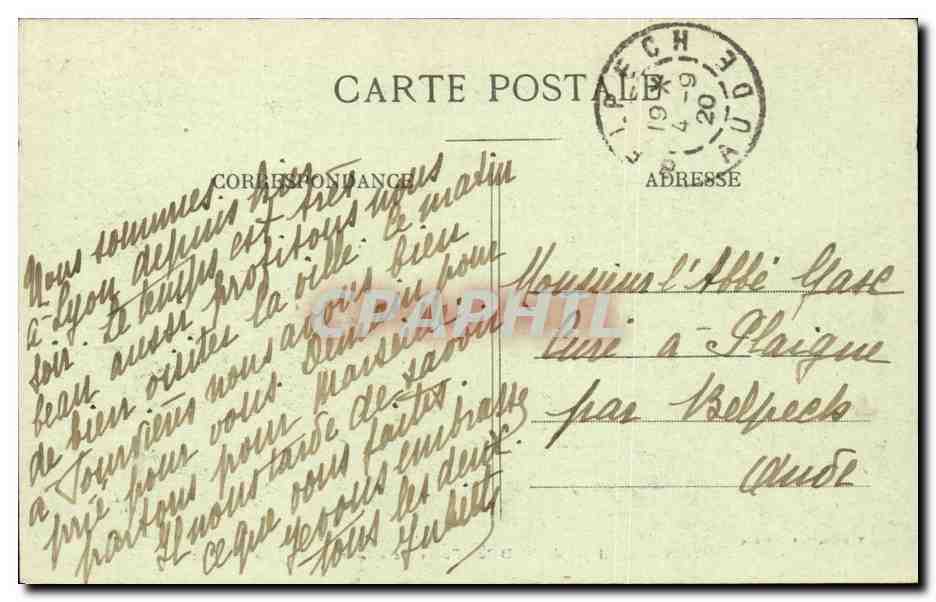 CARTE POSTALE
CORRESPONDANCE
ADRESSE
BELPECH AUDE
19
4 -9
20
Nous sommes
à Lyon depuis hier
soir. Le temps est très
beau aussi profitons nous
de bien visiter la ville. Ce matin
à Fourvières nous avons bien
prié pour vous. Demain
partons pour Marseille.
Il nous tarde de savoir
ce que vous faites.
Je vous embrasse
tous les deux.
Monsieur l'Abbé Gasc
Curé à Plaigne
par Belpech
Aude
CPAPHIL